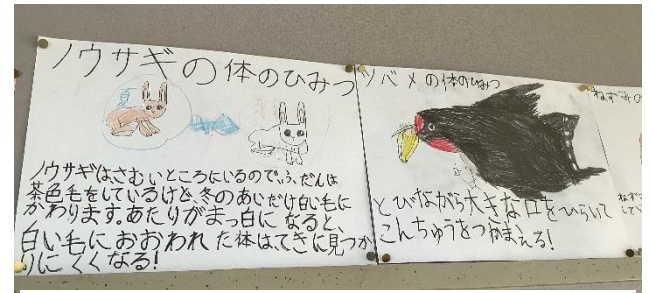 ノウサギの体のひみつ
夏
ノウサギはさむいところにいるのでふだんは
茶色毛をしているけど、冬のあいだけ白い毛に
かわります。あたりがまっ白になると、
白い毛におおわれた体は、てきに見つか
りにくくなる!
ツバメの体のひみつ
とびながら大きな口をひらいて
こんちゅうをつかまえる!
ねずみの